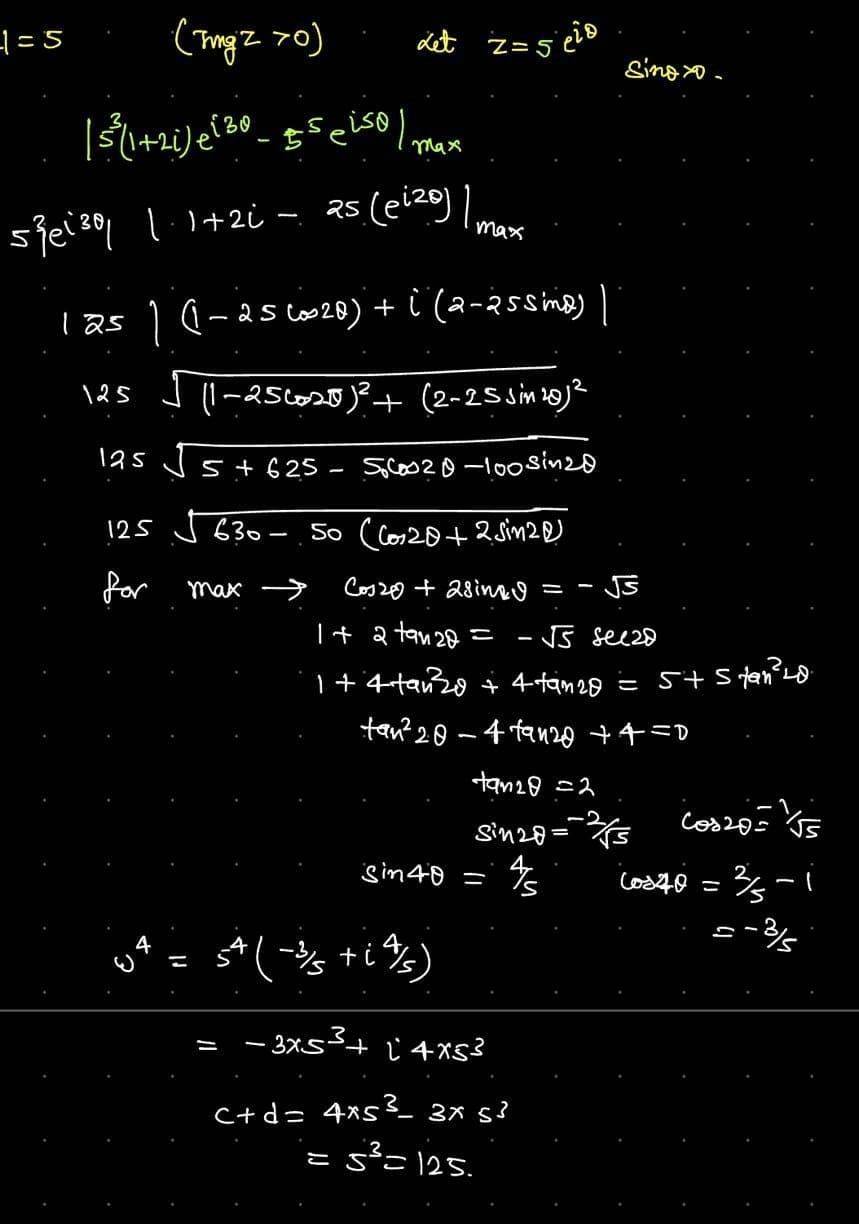 1 = 5 (Img z > 0) Let z = 5 e^{iθ}
sinθ > 0.
|5³(1+2i)e^{i3θ} - 5⁵ e^{i5θ}| max
5³|e^{i3θ}| | 1+2i - 25(e^{i2θ})| max
125 | (1 - 25 cos2θ) + i (2 - 25 sinθ) |
125 √((1 - 25cos2θ)² + (2 - 25 sin 2θ)²)
125 √(5 + 625 - 50cos2θ - 100 sin2θ)
125 √(630 - 50 (cos2θ + 2 sin2θ))
for max → cos2θ + 2sin2θ = - √5
1 + 2 tan 2θ = - √5 sec2θ
1 + 4tan²2θ + 4tan2θ = 5 + 5 tan²2θ
tan²2θ - 4 tan2θ + 4 = 0
tan2θ = 2
sin2θ = -2/√5 cos2θ = -1/√5
sin4θ = 4/5 cos4θ = 2/5 - 1
= -3/5
ω⁴ = 5⁴ ( -3/5 + i 4/5)
= - 3×5³ + i 4×5³
c + d = 4×5³ - 3× 5³
= 5³ = 125.